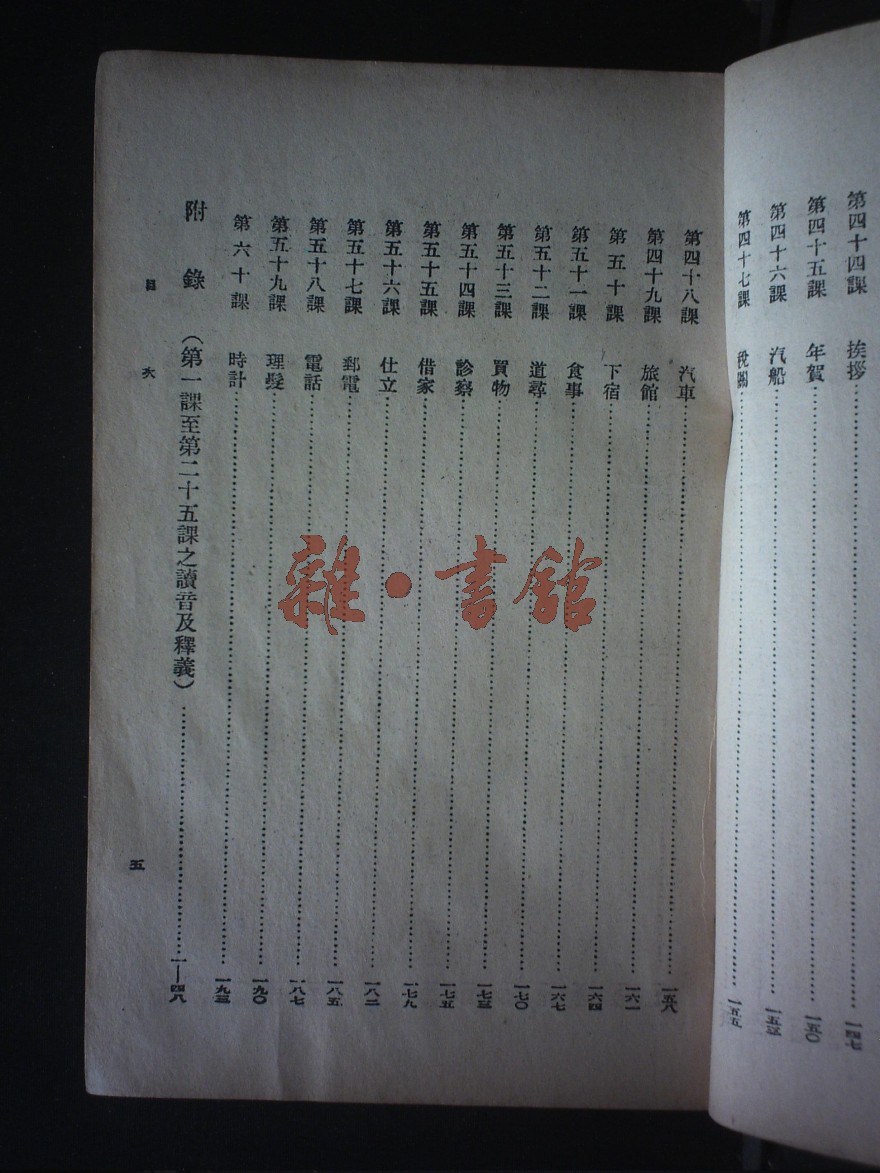 第四十四課　挨拶……一四七
第四十五課　年賀……一五〇
第四十六課　汽船……一五三
第四十七課　稅關……一五五
第四十八課　汽車……一五八
第四十九課　旅館……一六一
第五十課　下宿……一六四
第五十一課　食事……一六七
第五十二課　道尋……一七〇
第五十三課　買物……一七三
第五十四課　診察……一七五
第五十五課　借家……一七九
第五十六課　仕立……一八二
第五十七課　郵電……一八五
第五十八課　電話……一八七
第五十九課　理髮……一九〇
第六十課　時計……一九三
附錄　（第一課至第二十五課之讀音及釋義）……一—四八
目次　五
雜·書館